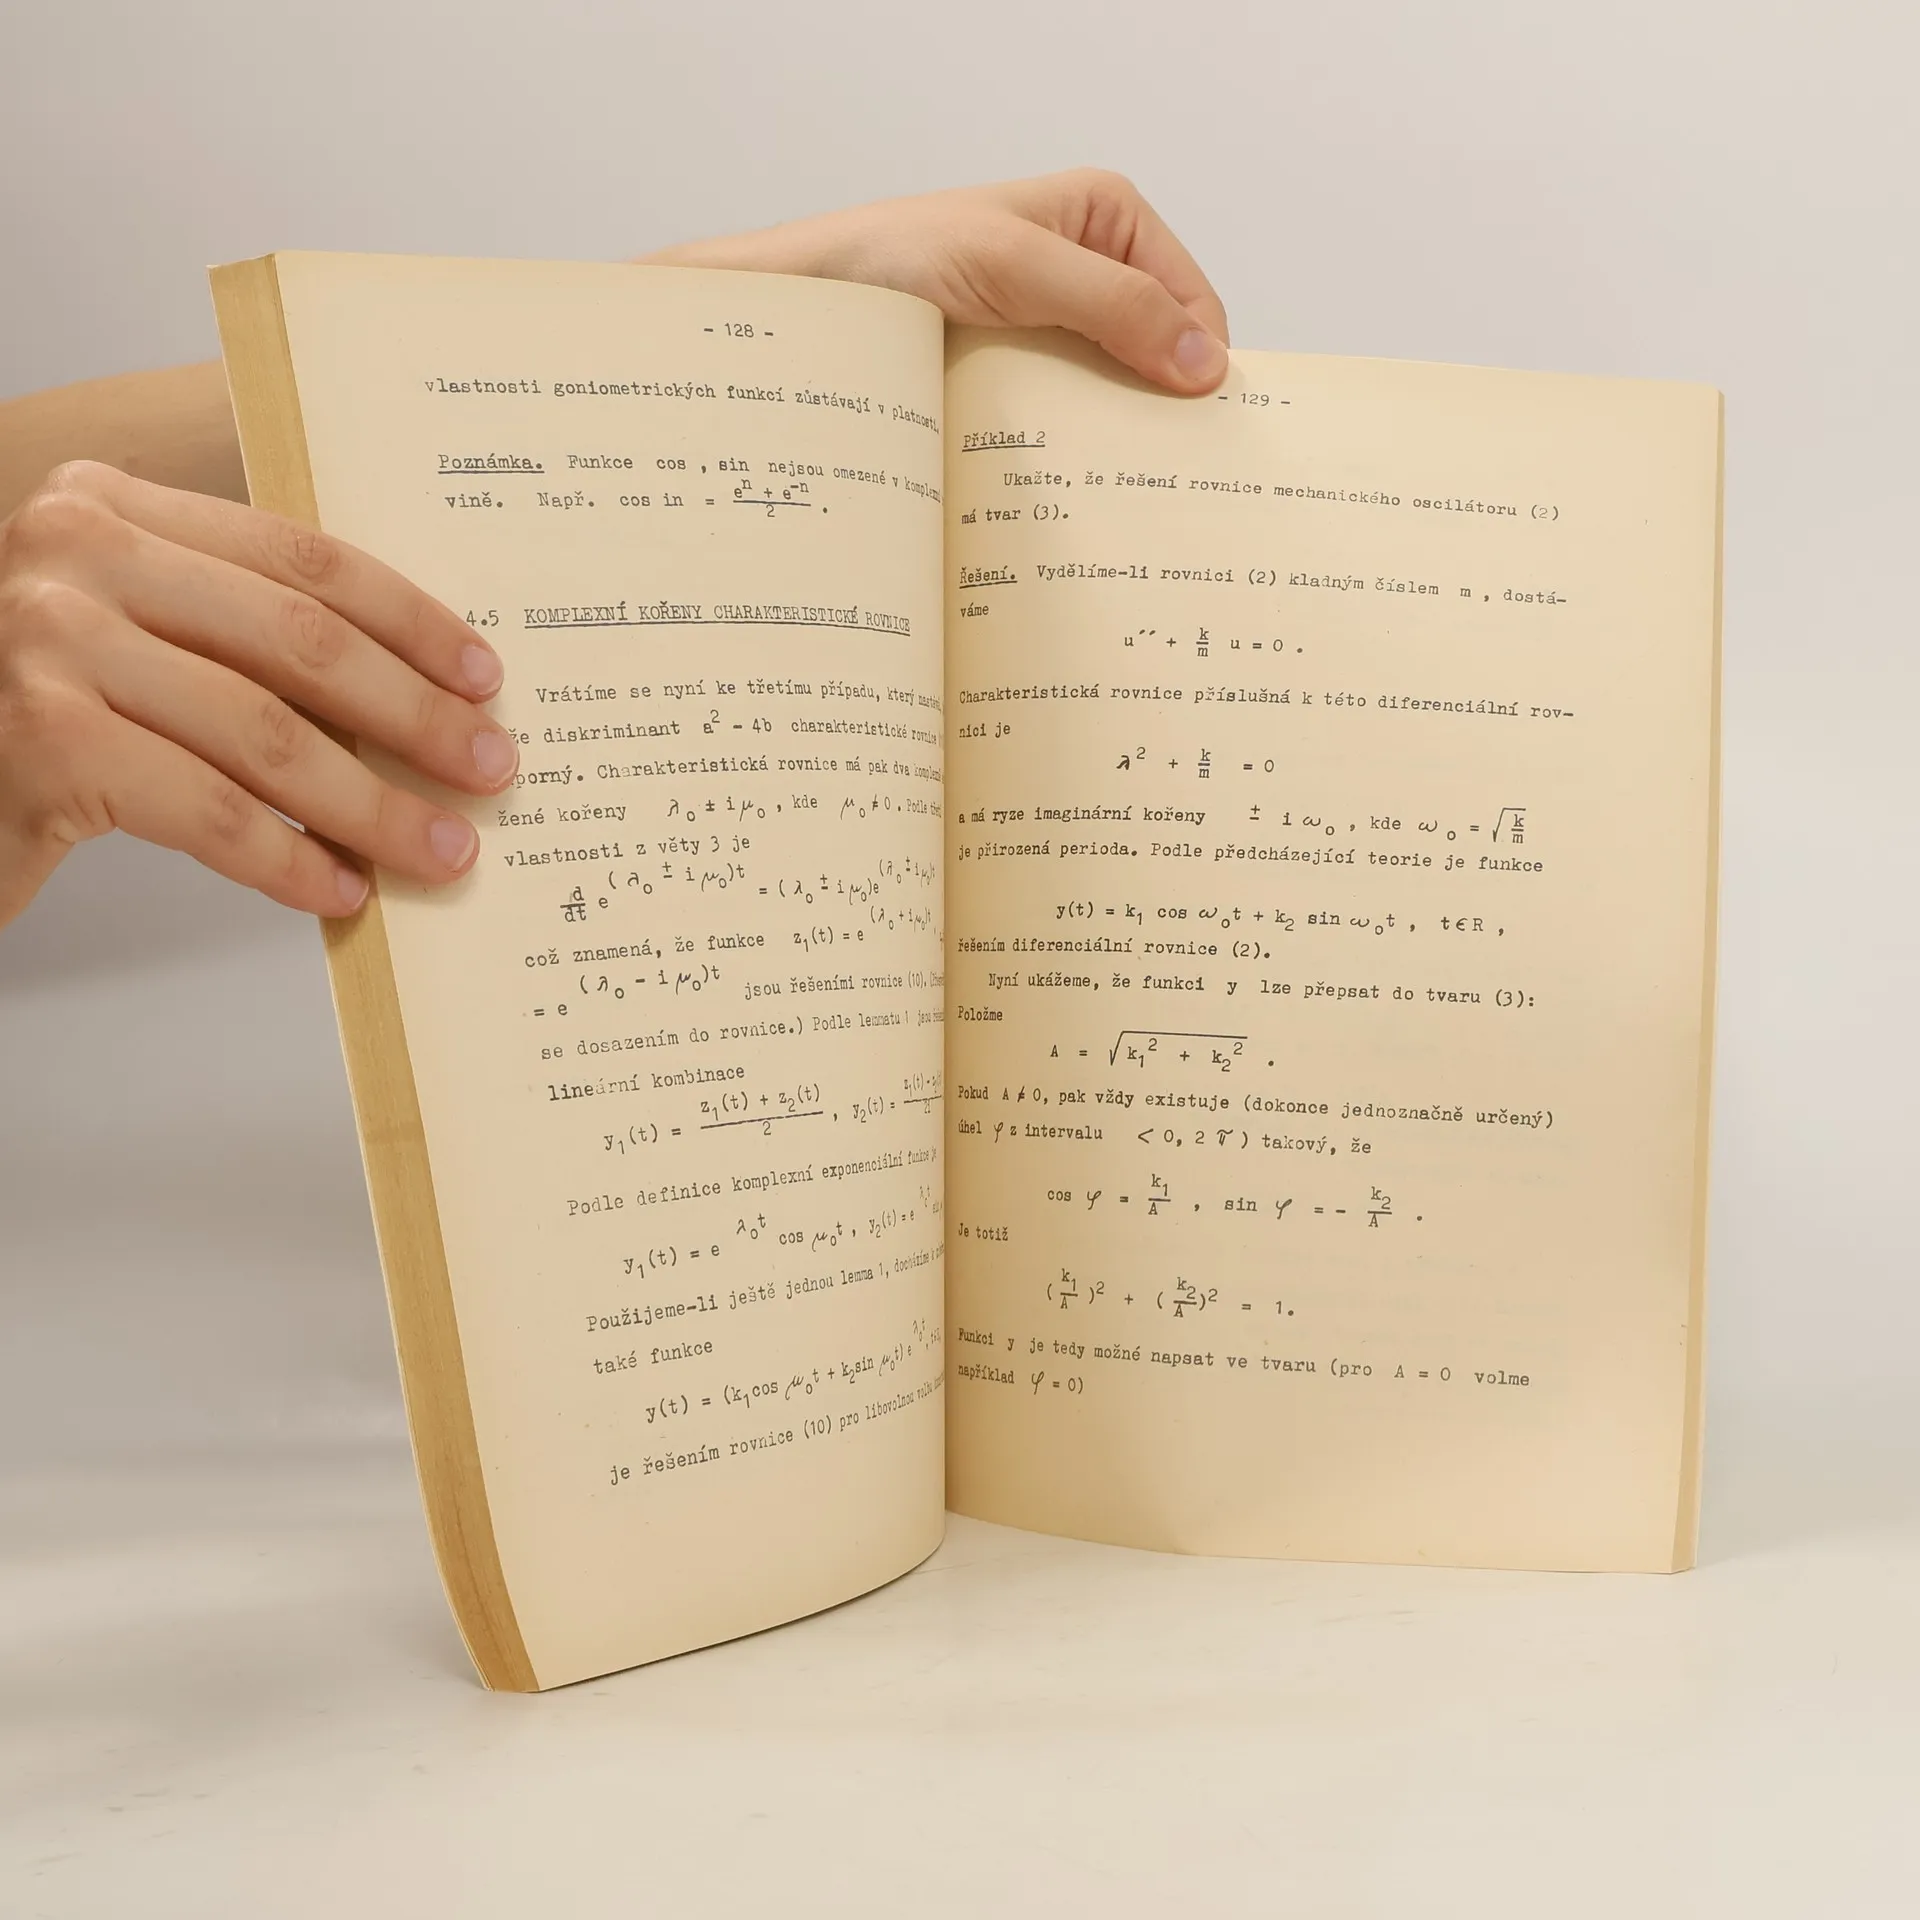 - 128 -
vlastnosti goniometrických funkcí zůstávají v platnosti.
Poznámka. Funkce cos , sin nejsou omezené v
vině. Např. cos in = \frac{e^n + e^{-n}}{2} .
4.5 KOMPLEXNÍ KOŘENY CHARAKTERISTICKÉ ROVNICE
Vrátíme se nyní ke třetímu případu, který
že diskriminant a² - 4b charakteristické rovnice
porný. Charakteristická rovnice má pak dva
žené kořeny λ₀ ± iμ₀ , kde μ₀ ≠ 0 . Podle
vlastnosti z věty 3 je
\frac{d}{dt} e^{(λ₀ ± iμ₀)t} = (λ₀ ± iμ₀)e^{(λ₀ ± iμ₀)t}
což znamená, že funkce z₁(t) = e^{(λ₀ + iμ₀)t},
= e^{(λ₀ - iμ₀)t} jsou řešeními rovnice (10).
se dosazením do rovnice.) Podle lemmatu 1 jsou
lineární kombinace
y₁(t) = \frac{z₁(t) + z₂(t)}{2} , y₂(t) =
Podle definice komplexní exponenciální funkce je
y₁(t) = e^{λ₀t} cos μ₀t , y₂(t) = e^{λ₀t}
Použijeme-li ještě jednou lemma 1, docházíme k
také funkce
y(t) = (k₁cos μ₀t + k₂sin μ₀t) e^{λ₀t},
je řešením rovnice (10) pro libovolnou volbu
- 129 -
Příklad 2
Ukažte, že řešení rovnice mechanického oscilátoru (2)
má tvar (3).
Řešení. Vydělíme-li rovnici (2) kladným číslem m , dostá-
váme
u´´ + \frac{k}{m} u = 0 .
Charakteristická rovnice příslušná k této diferenciální rov-
nici je
λ² + \frac{k}{m} = 0
a má ryze imaginární kořeny ± i ω₀ , kde ω₀ = \sqrt{\frac{k}{m}}
je přirozená perioda. Podle předcházející teorie je funkce
y(t) = k₁ cos ω₀t + k₂ sin ω₀t , t∈R ,
řešením diferenciální rovnice (2).
Nyní ukážeme, že funkci y lze přepsat do tvaru (3):
Položme
A = \sqrt{k₁² + k₂²} .
Pokud A ≠ 0, pak vždy existuje (dokonce jednoznačně určený)
úhel φ z intervalu < 0, 2 π ) takový, že
cos φ = \frac{k₁}{A} , sin φ = - \frac{k₂}{A} .
Je totiž
(\frac{k₁}{A})² + (\frac{k₂}{A})² = 1.
Funkci y je tedy možné napsat ve tvaru (pro A = 0 volme
například φ = 0)